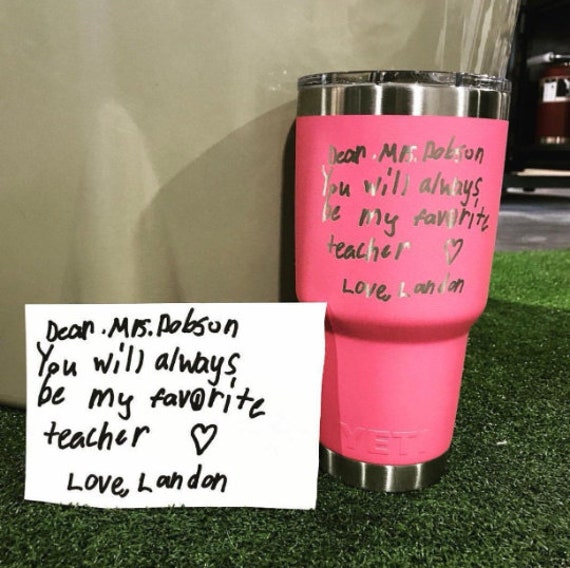 Dear. Mrs. Dobson
You will always
be my favorite
teacher ♡
Love, Landon
Dear. Mrs. Dobson
You will always
be my favorite
teacher ♡
Love, Landon
YETI